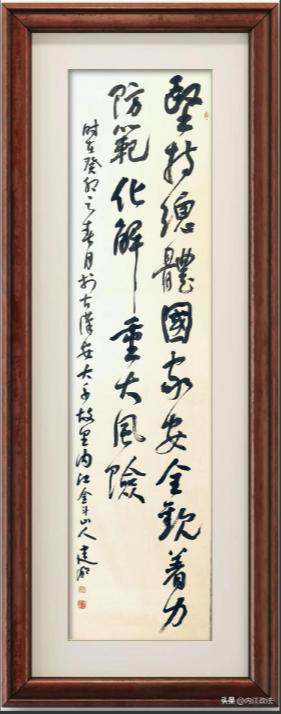 堅持總體國家安全觀着力
防範化解重大風險
時在癸卯之春月於古漢安大千故里内江金斗山人建
头条@内江政法